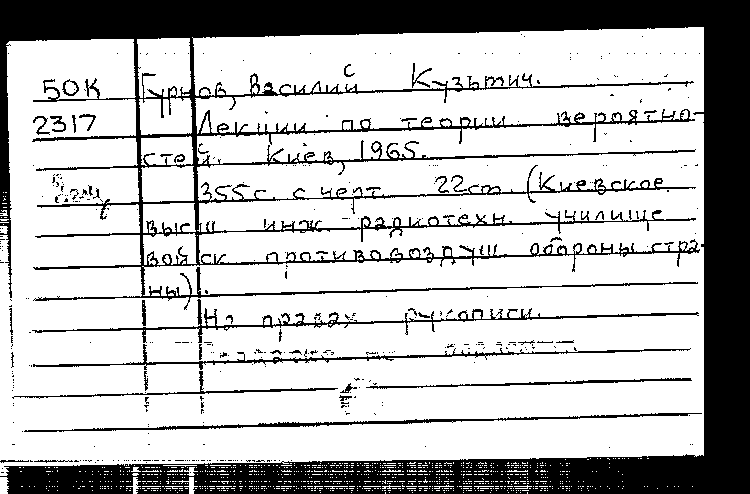 50К Гурнов, Василий Кузьмич.
2317 Лекции по теории вероятно-
стей. Киев, 1965.
355с. с черт. 22см. (Киевское
высш. инж. радиотехн. училище
войск противовоздуш. обороны стра-
ны).
На правах рукописи.